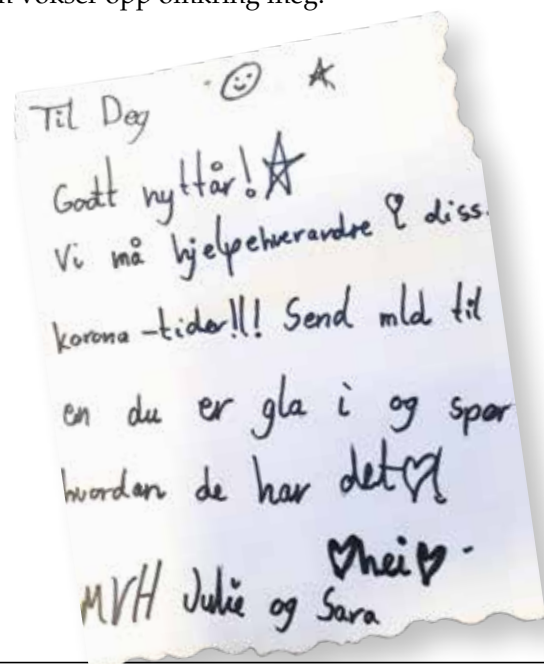 vokser opp omkring meg.
Til Deg
Godt nyttår!
Vi må hjelpehverandre i diss.
korona-tider!!! Send mld til
en du er gla i og spør
hvordan de har det
hei
MVH Julie og Sara